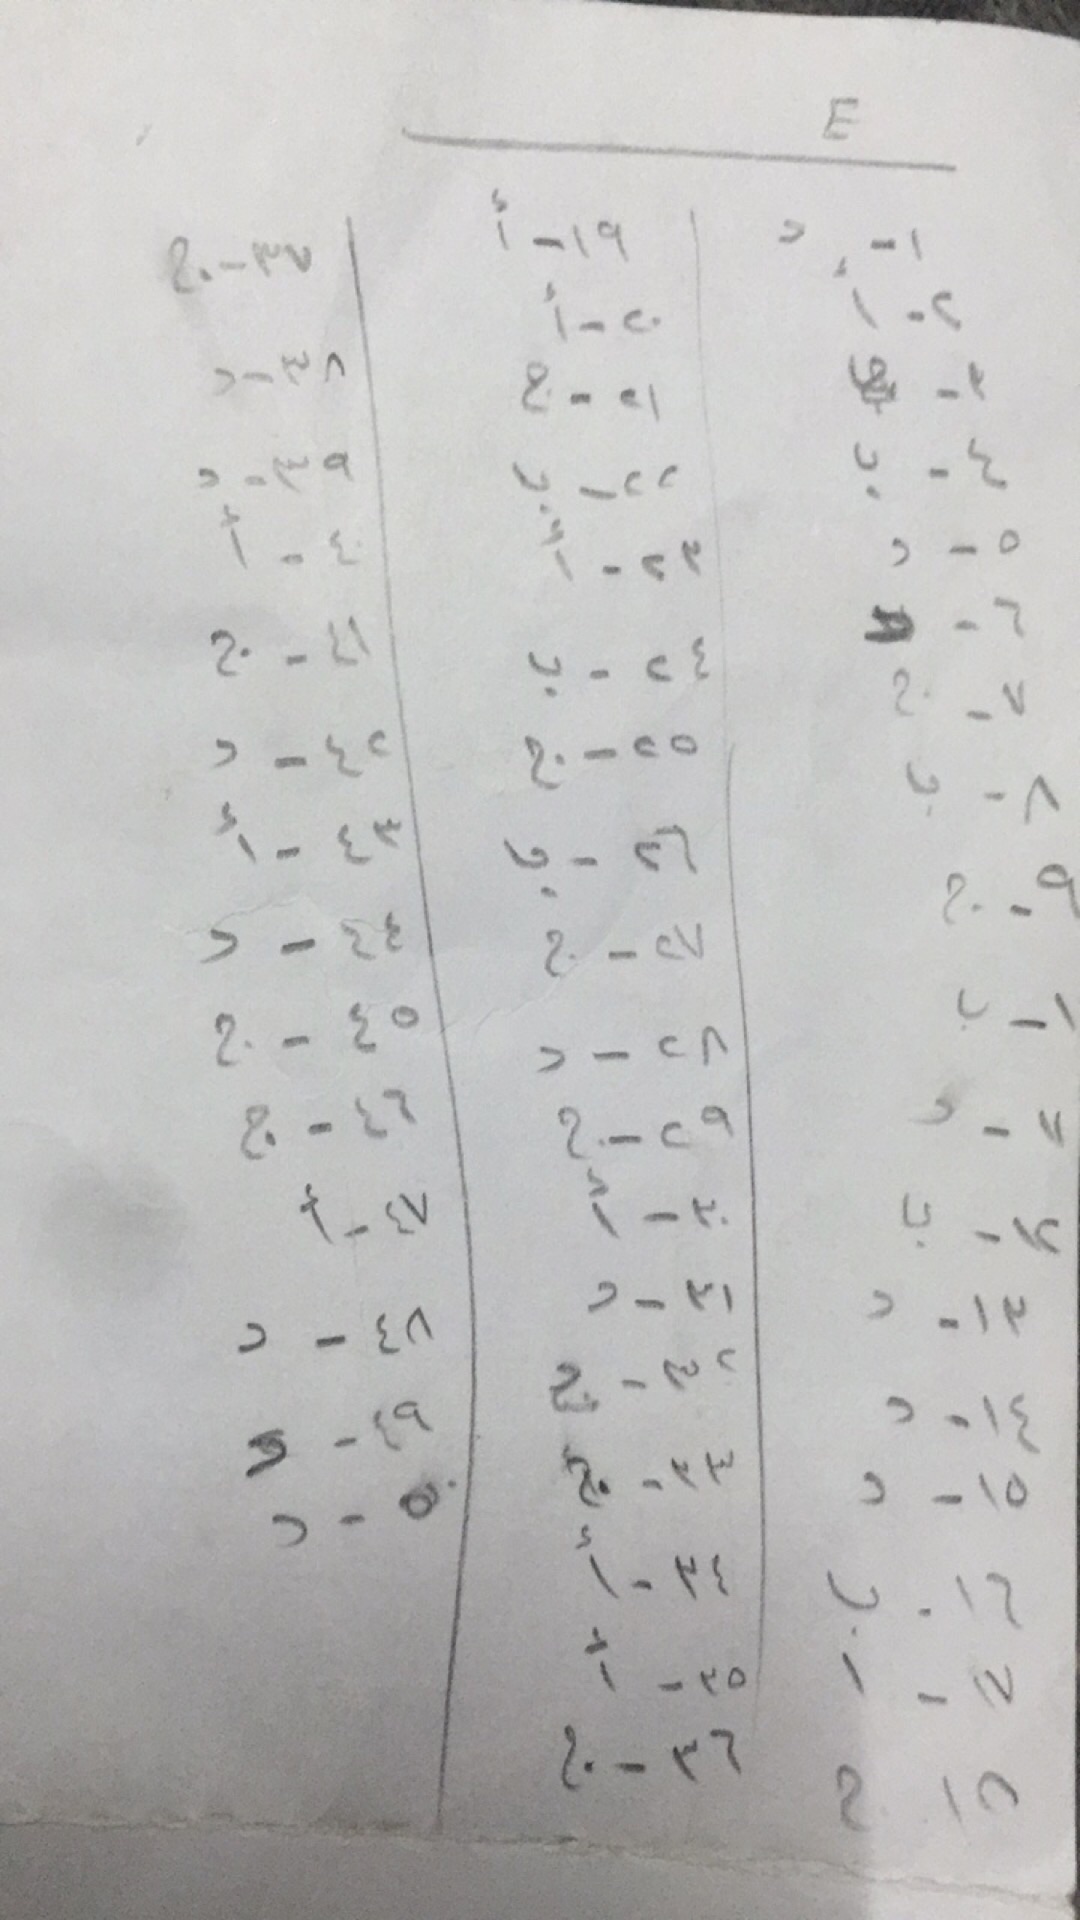 E
١- د
٢- أ
٣-
٤- ب
٥- د
٦-
٧- ج
٨- ب
٩- ج
١- ب
١١- د
١٢- ب
١٣- د
١٤- د
١٥- د
١٦- ب
١٧- ا
١٨ ج
١٩- أ
٢٠- أ
٢١- ج
٢٢- ب
٢٣- أ
٢٤- ب
٢٥- ج
٢٦- ب
٢٧- ج
٢٨- د
٢٩- ج
٣٠- أ
٣١- د
٣٢- ج
٣٣- ج
٣٤- أ
٣٥- أ
٣٦- ج
٣٧- ج
٣٨- د
٣٩- د
٤٠- أ
٤١- ج
٤٢- د
٤٣- أ
٤٤- د
٤٥- ج
٤٦- ج
٤٧- أ
٤٨- د
٤٩-
٥٠- د